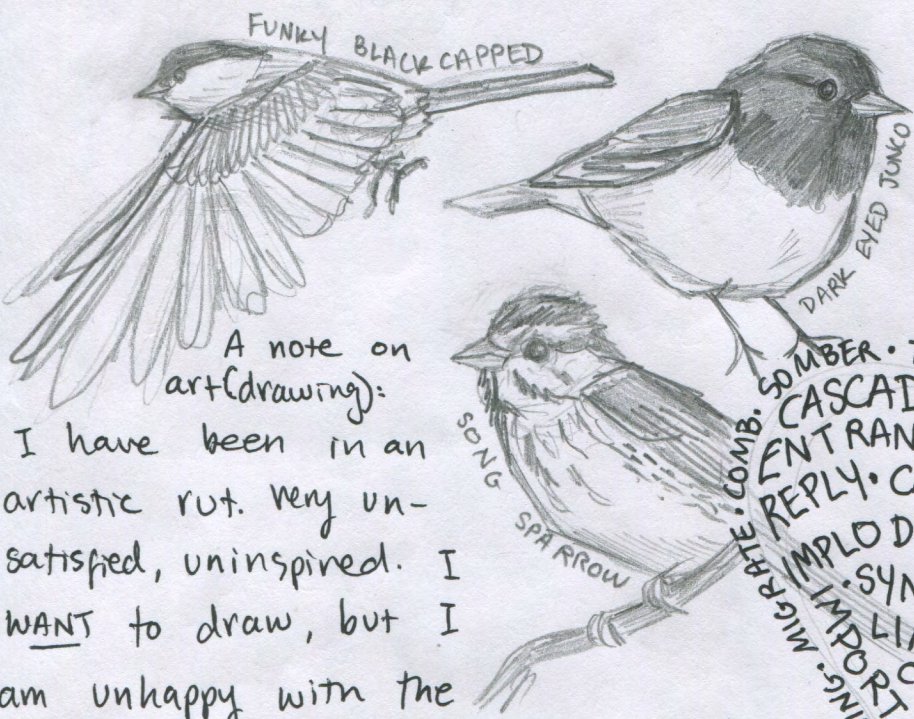 FUNKY BLACK CAPPED
DARK EYED JUNCO
SONG
SPARROW
A note on
art(drawing):
I have been in an
artistic rut. Very un-
satisfied, uninspired. I
WANT to draw, but I
am unhappy with the
MIGRATE • COMB. SOMBER •
REPLY •